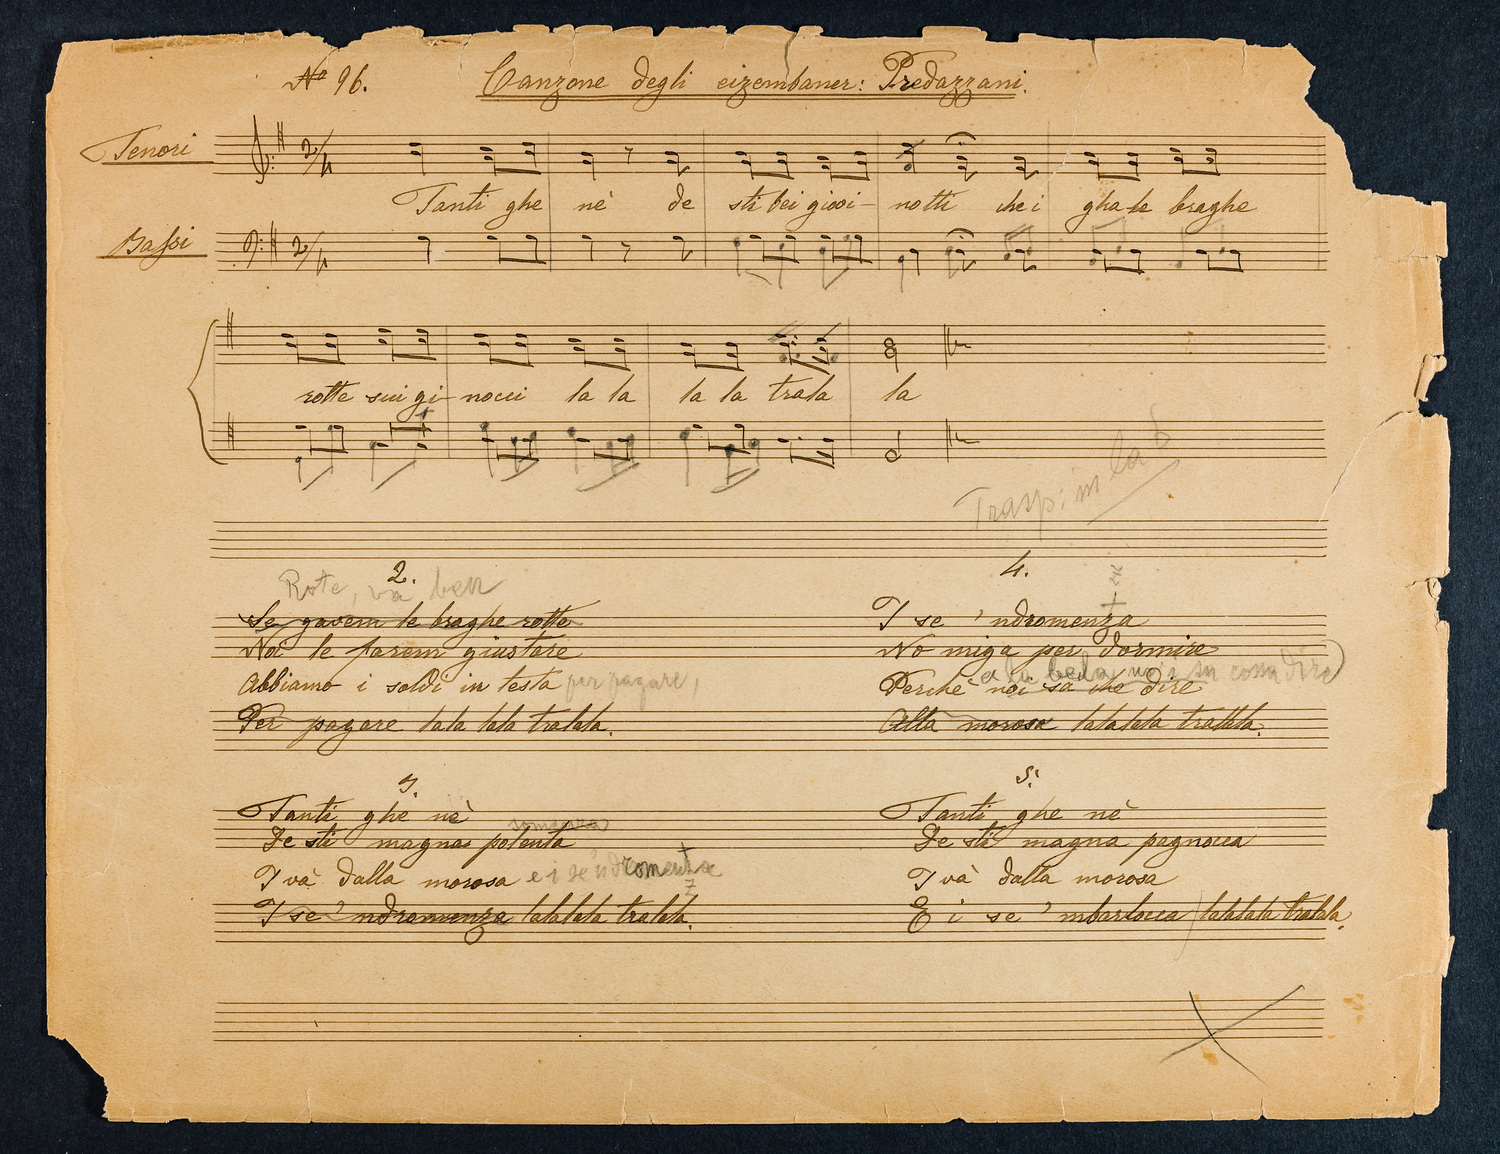 No 96. Canzone degli eizembaner: Predazzani.
Tenori
2/4
Tanti ghe nè de sti bei giovi- notti che i gha le braghe
Bassi
2/4
rotte sui gi- nocci la la la la trala la
Trasp. in la b
2.
Rote, va ben
Se gavem le braghe rotte
Noi le farem giustare
Abbiamo i soldi in testa per pagare,
Per pagare lala lala tralala.
3.
Tanti ghe nè
De sti magna polenta
I và dalla morosa e i se 'ndromenta
z
I se 'ndromenza lalalala tralala.
4.
I se 'ndromenza
No miga per dormire
a la bela no i sa cossa dire
Perchè noi sa che dire
Alla morosa lalalala tralala.
5.
Tanti ghe nè
De sti magna pagnocca
I và dalla morosa
E i se 'mbarlocca lalalala tralala.